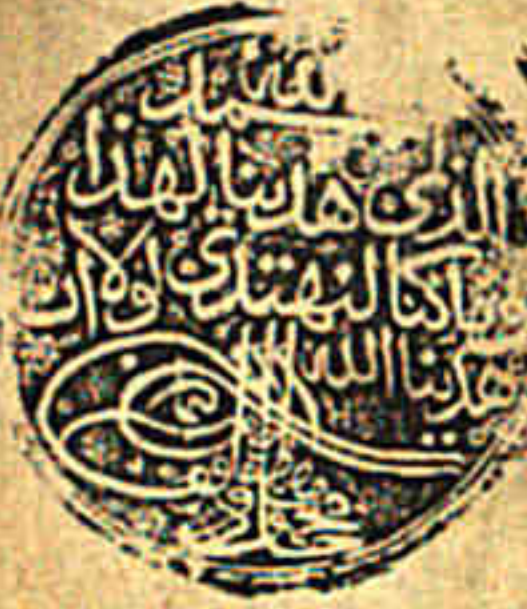 حمد لله
الذى هدينا لهذا
وما كنا لنهتدى لولا ان
هدينا الله